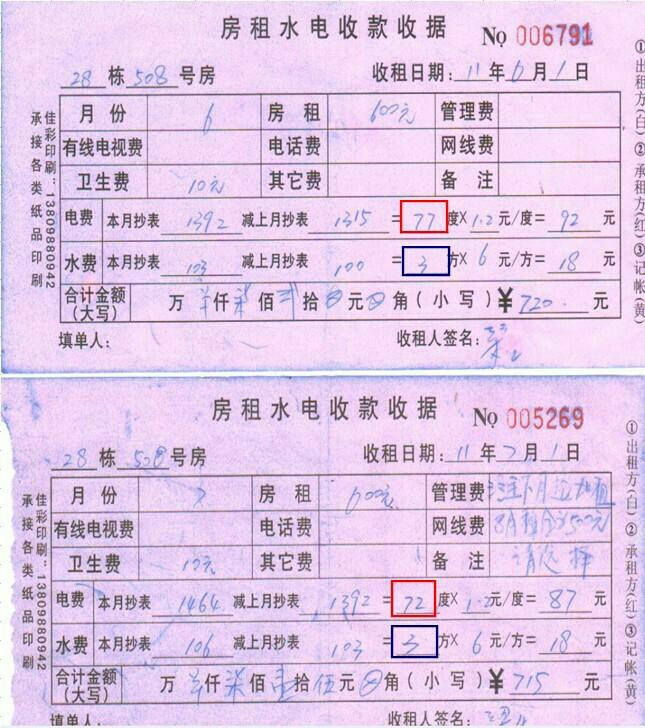 房租水电收款收据 No 006791
28栋508号房 收租日期:11年6月1日
月份 6 房租 600元 管理费
有线电视费 电话费 网线费
卫生费 10元 其它费 备注
电费 本月抄表 1392 减上月抄表 1315 = 77 度× 1.2 元/度= 92 元
水费 本月抄表 103 减上月抄表 100 = 3 方× 6 元/方= 18 元
合计金额(大写) 万 仟柒佰贰拾 元 角(小写)¥720. 元
填单人: 收租人签名:
佳彩印刷:13809880942
承接各类纸品印刷
①出租方(白)②承租方(红)③记帐(黄)
房租水电收款收据 No 005269
28栋508号房 收租日期:11年7月1日
月份 7 房租 600元 管理费
有线电视费 电话费 网线费
卫生费 10元 其它费 备注 请选择
电费 本月抄表 1464 减上月抄表 1392 = 72 度× 1.2 元/度= 87 元
水费 本月抄表 106 减上月抄表 103 = 3 方× 6 元/方= 18 元
合计金额(大写) 万 仟柒佰壹拾伍元 角(小写)¥715 元
填单人: 收租人签名:
佳彩印刷:13809880942
承接各类纸品印刷
①出租方(白)②承租方(红)③记帐(黄)